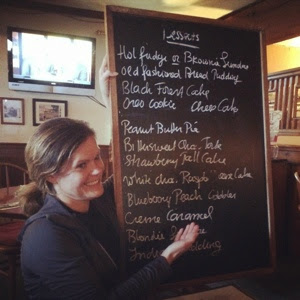 Desserts
Hot fudge or Brownie Sundae
old fashioned Bread Pudding
Black Forest Cake
Oreo cookie Cheese Cake
Peanut Butter Pie
Bittersweet Choc. Tart
Strawberry Tall Cake
White choc. Raspb. Cake
Blueberry Peach Cobbler
Creme Caramel
Blondie
Indian Pudding